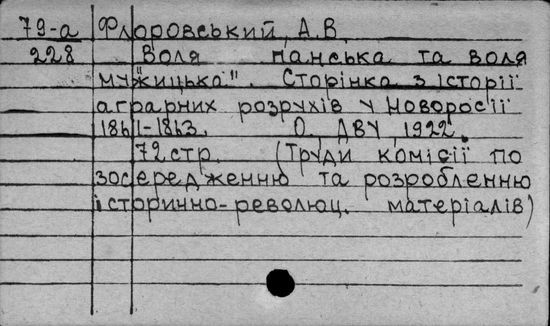 79-а Флоровський, А.В.
228 "Воля панська та воля
мужицька". Сторінка з історії
аграрних розрухів у Новоросії
1861-1863. О. ДВУ, 1922.
72 стр. (Труди комісії по
зосередженню та розробленню
історично-революц. матеріалів)